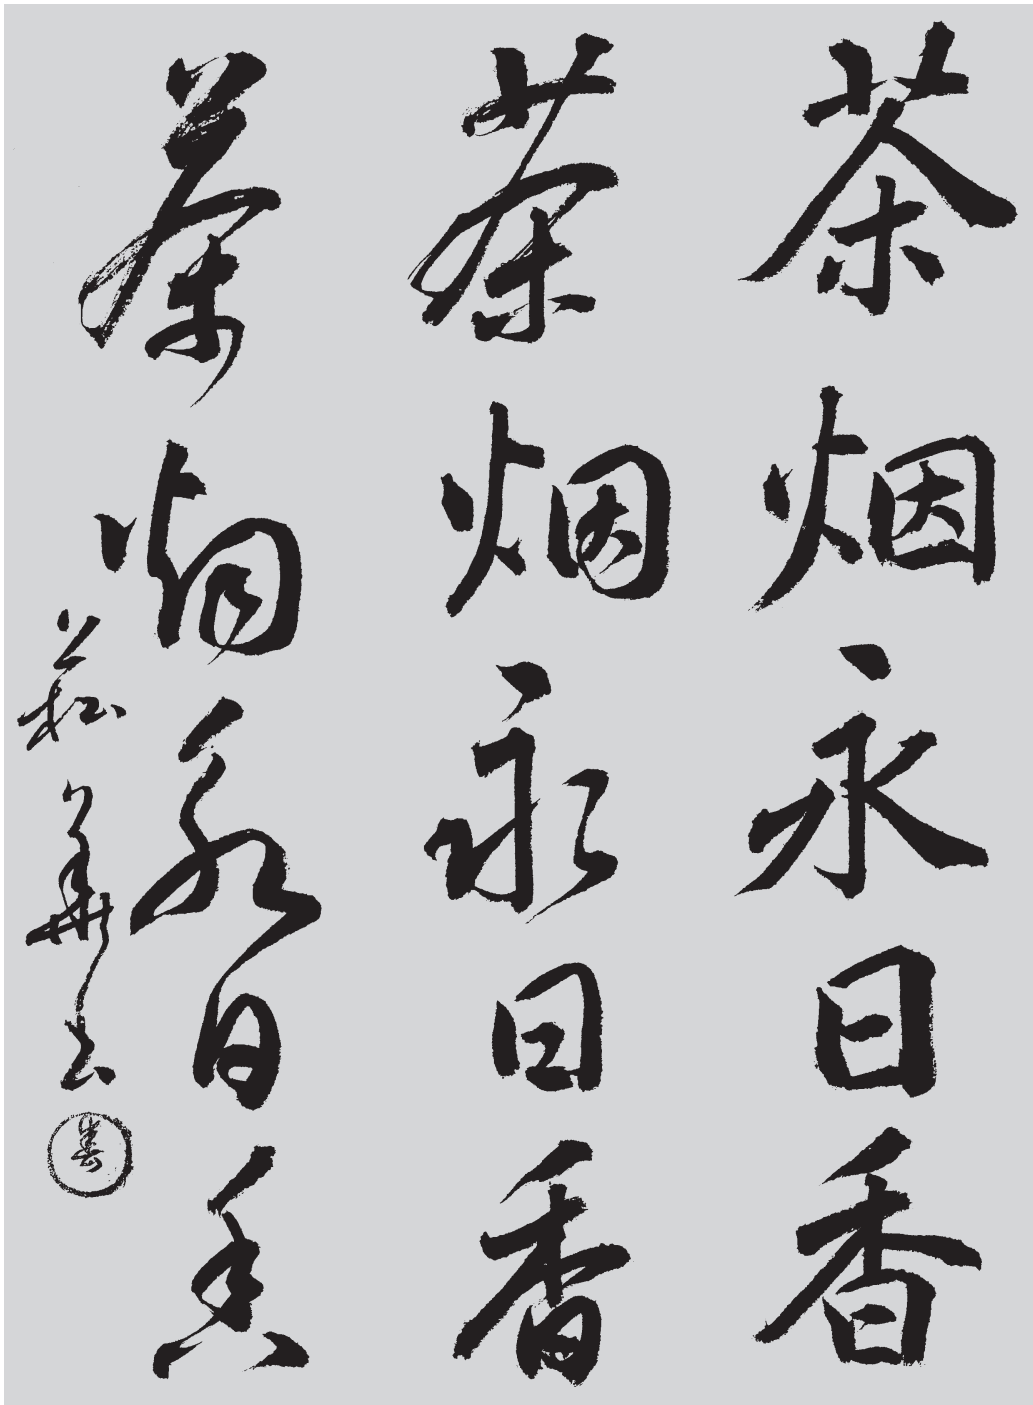 茶烟永日香
茶烟永日香
茶烟永日香
菘華书